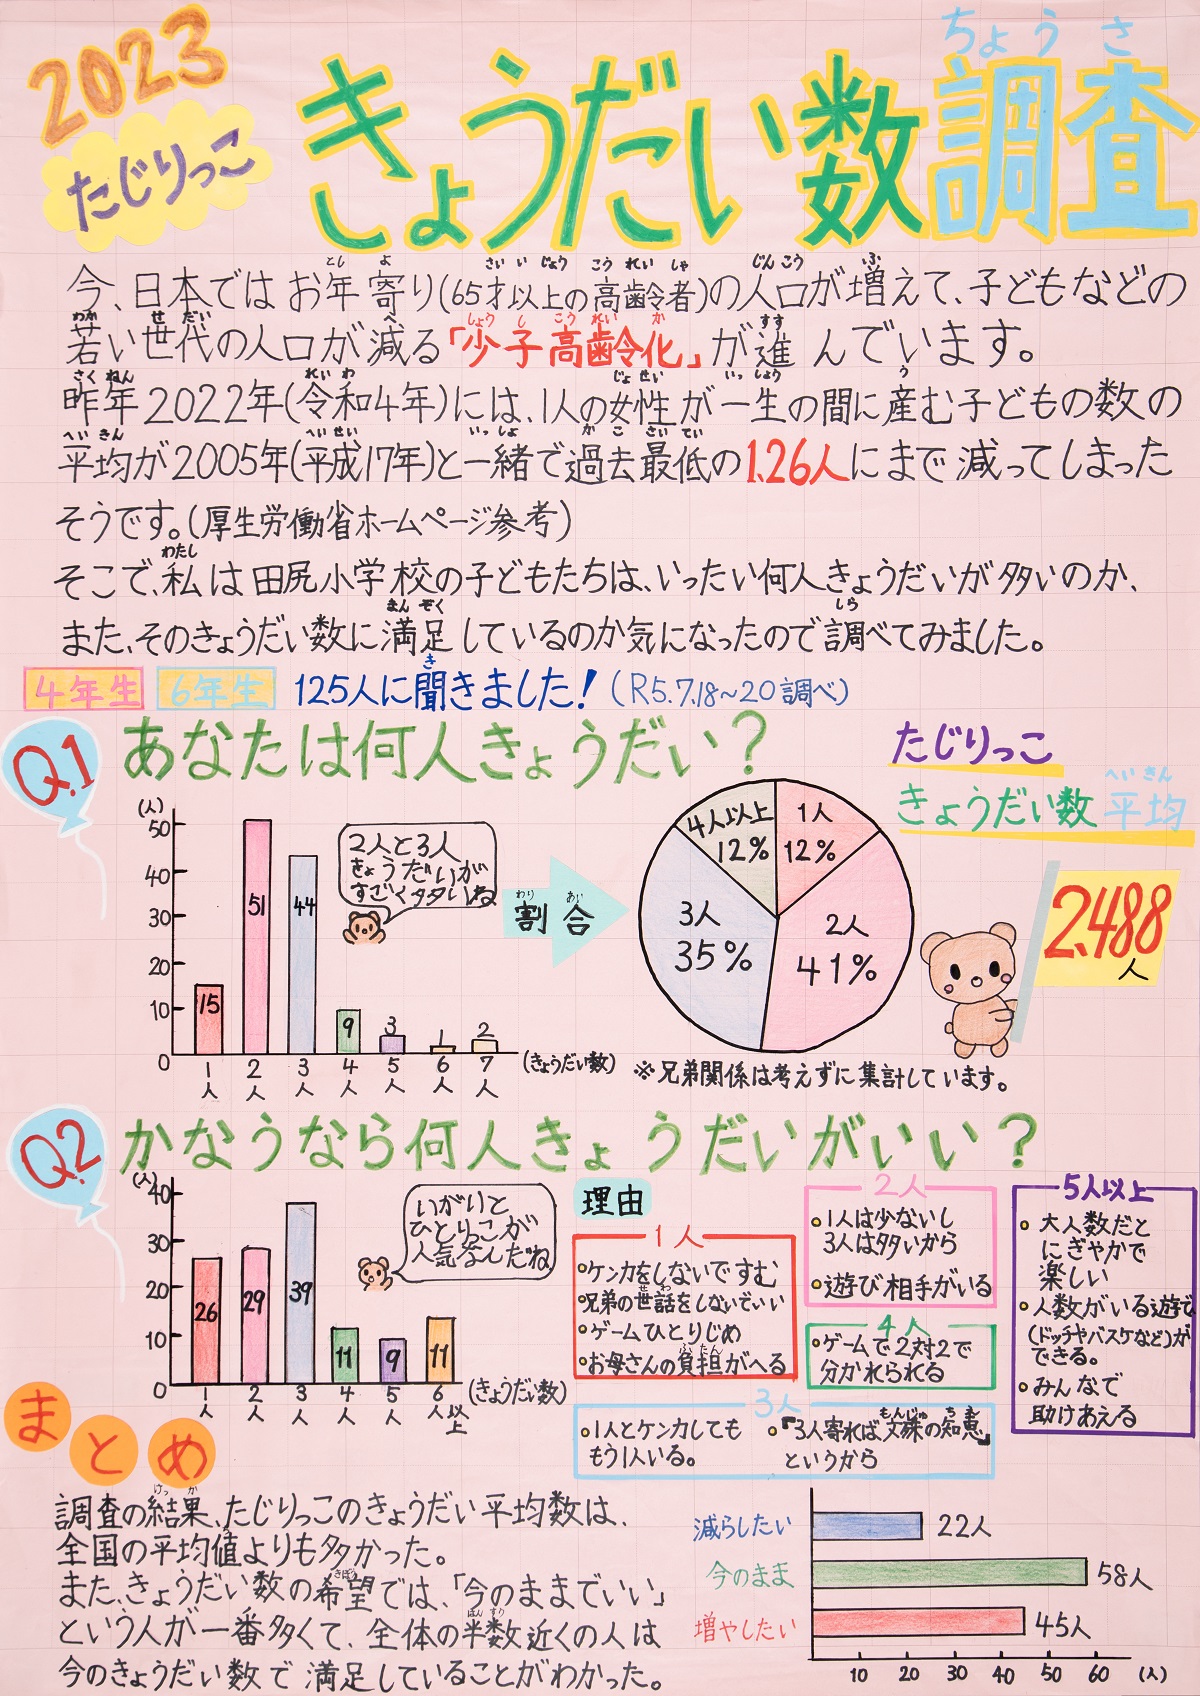 2023
たじりっこ
きょうだい数調査
ちょうさ
今、日本ではお年寄り(65才以上の高齢者)の人口が増えて、子どもなどの
若い世代の人口が減る「少子高齢化」が進んでいます。
昨年2022年(令和4年)には、1人の女性が一生の間に産む子どもの数の
平均が2005年(平成17年)と一緒で過去最低の1.26人にまで減ってしまった
そうです。(厚生労働省ホームページ参考)
そこで、私は田尻小学校の子どもたちは、いったい何人きょうだいが多いのか、
また、そのきょうだい数に満足しているのか気になったので調べてみました。
4年生 6年生 125人に聞きました!(R5.7.18~20調べ)
Q.1 あなたは何人きょうだい?
(人)
50
40
30
20
10
0
15
51
44
9
3
1
2
1人 2人 3人 4人 5人 6人 7人 (きょうだい数)
2人と3人
きょうだいが
すごく多いね
割合
わりあい
4人以上
12%
1人
12%
3人
35%
2人
41%
たじりっこ
きょうだい数平均
へいきん
2.488
人
※兄弟関係は考えずに集計しています。
Q.2 かなうなら何人きょうだいがいい?
(人)
40
30
20
10
0
26
29
39
11
9
11
1人 2人 3人 4人 5人 6人以上 (きょうだい数)
いがいと
ひとりっこが
人気なんだね
理由
1人
・ケンカをしないですむ
・兄弟の世話をしないでいい
・ゲームひとりじめ
・お母さんの負担がへる
2人
・1人は少ないし
3人は多いから
・遊び相手がいる
4人
・ゲームで2対2で
分かれられる
3人
・1人とケンカしても
もう1人いる。
・『3人寄れば文殊の知恵』
というから
5人以上
・大人数だと
にぎやかで
楽しい
・人数がいる遊びで
(ドッチやバスケなど)が
できる。
・みんなで
助けあえる
まとめ
調査の結果、たじりっこのきょうだい平均数は、
全国の平均値よりも多かった。
また、きょうだい数の希望では、「今のままでいい」
という人が一番多くて、全体の半数近くの人は
今のきょうだい数で満足していることがわかった。
減らしたい 22人
今のまま 58人
増やしたい 45人
10 20 30 40 50 60 (人)